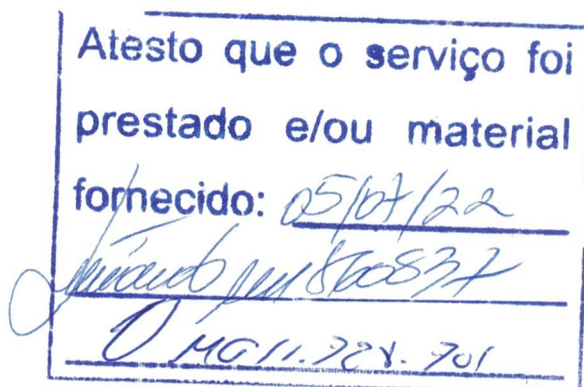 Atesto que o serviço foi
prestado e/ou material
fornecido: 05/07/22
860837
MG11.728.701